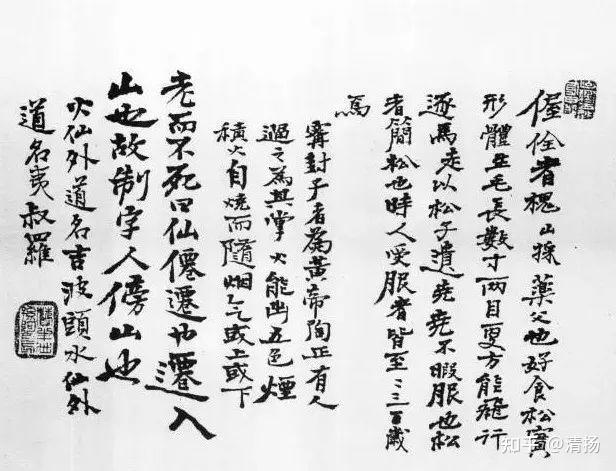 偓佺者槐山採藥父也好食松實
形體生毛長數寸兩目更方能飛行
逐馬走以松子遺堯堯不暇服也松
者簡松也時人受服者皆至二三百歲
焉
甯封子者為黃帝陶正有人
過之為其掌火能出五色煙
積火自燒而隨烟气或上或下
老而不死曰仙僊遷也遷入
山也故制字人傍山也
火仙外道名吉波頭水仙外
道名夷叔羅
知乎 @清扬